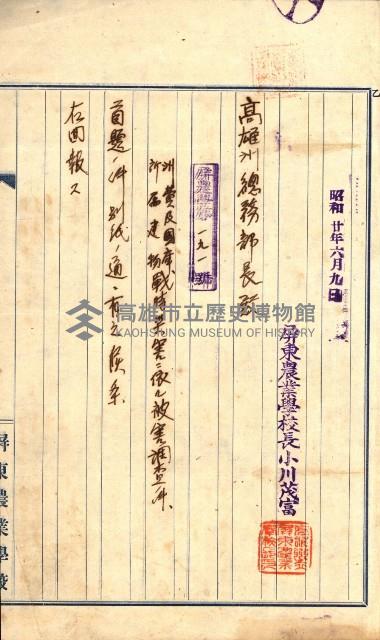 乙
昭和廿年六月九日
屏東農業學校長小川茂富
高雄州總務部長殿
屏農 一九一號
州費及國庫
所屬建物戰時災害ニ依ル被害調查ノ件
首題ノ件別紙ノ通ニ有之候条
右回報ス
屏東農業學校
高雄市立歷史博物館
KAOHSIUNG MUSEUM OF HISTORY